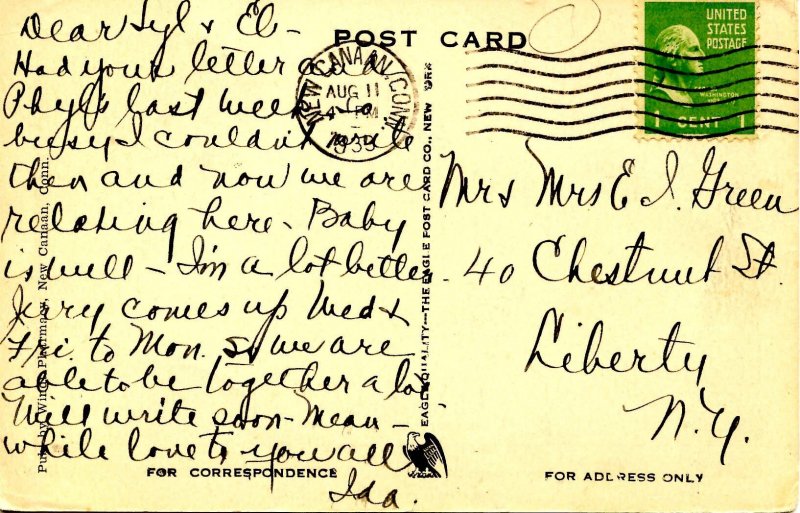 POST CARD
UNITED
STATES
POSTAGE
WASHINGTON
1 CENT 1
NEW CANAAN, CONN.
AUG 11
4 PM
1939
Dear Syl & El -
Had your letter and
Phyl's last week - So
busy I couldn't write
then and now we are
relaxing here - Baby
is well - I'm a lot better -
Jerry comes up Wed &
Fri. to Mon. So we are
able to be together a lot
Will write soon - Mean -
while love to you all
Ida.
Mr & Mrs E. I. Green
40 Chestnut St.
Liberty
N.Y.
Pub. by Wings Pharmacy, New Canaan, Conn.
EAGLE QUALITY—THE EAGLE POST CARD CO., NEW YORK
FOR CORRESPONDENCE
FOR ADDRESS ONLY